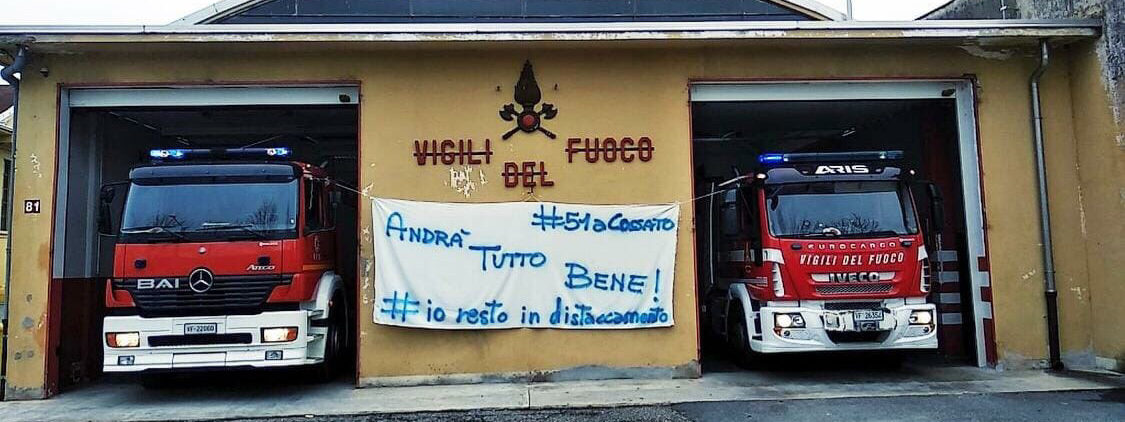 VIGILI
DEL
FUOCO
81
ARIS
EUROCARGO
VIGILI DEL FUOCO
IVECO
ATEGO
BAI
VF-22060
#51aCOSSATO
ANDRÀ
TUTTO
BENE!
#io resto in distaccamento